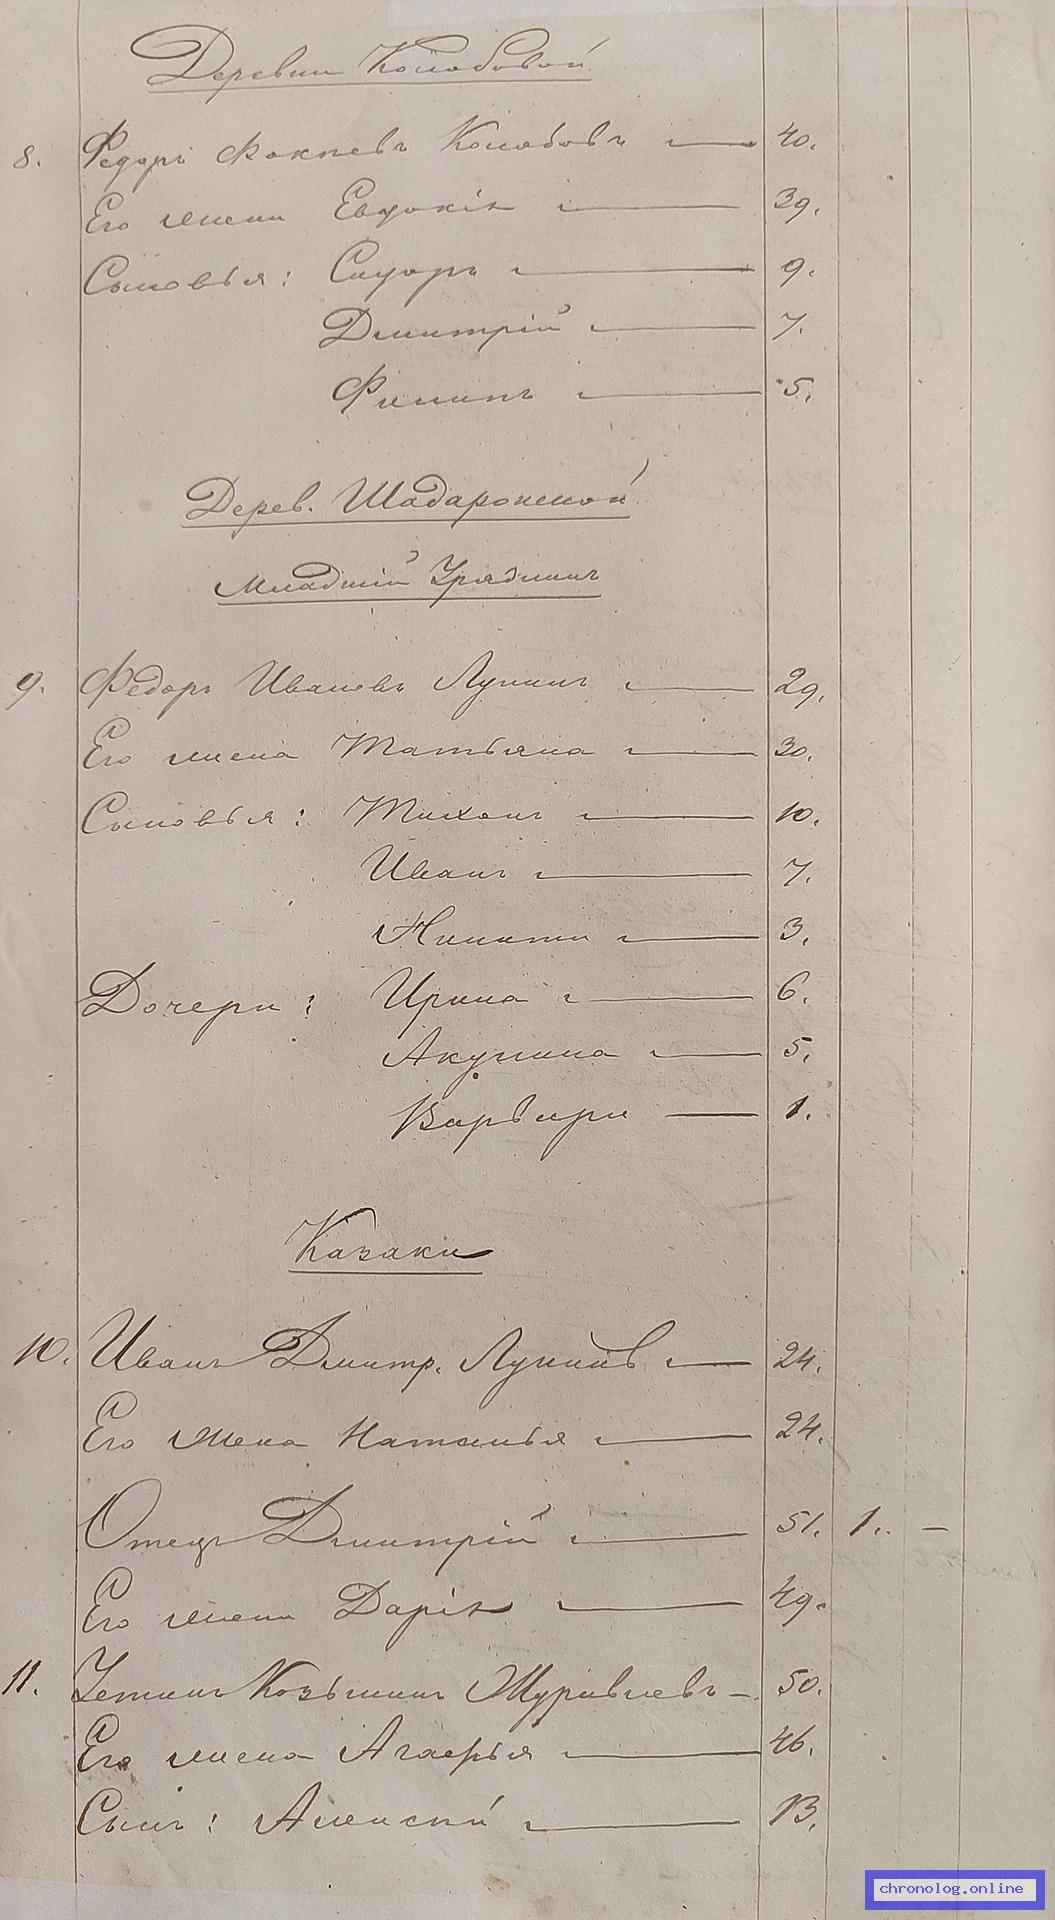 Деревни Колобовой
8. Федоръ Фокѣевъ Колобовъ — 40.
Его жена Евдокія — 39.
Сыновья: Сидоръ — 9.
Дмитрій — 7.
Филипъ — 5.
Дерев. Шадаронской
Младшій Урядникъ
9. Федоръ Ивановъ Лунинъ — 29.
Его жена Татьяна — 30.
Сыновья: Тихонъ — 10.
Иванъ — 7.
Никита — 3.
Дочери: Ирина — 6.
Акулина — 5.
Варвара — 1.
Казаки
10. Иванъ Дмитр. Лунинъ — 24.
Его жена Наталья — 24.
Отецъ Дмитрій — 51. 1. —
Его жена Дарія — 49.
11. Устинъ Козьминъ Журавлевъ — 50.
Его жена Агафья — 46.
Сынъ: Алексѣй — 13.
chronolog.online